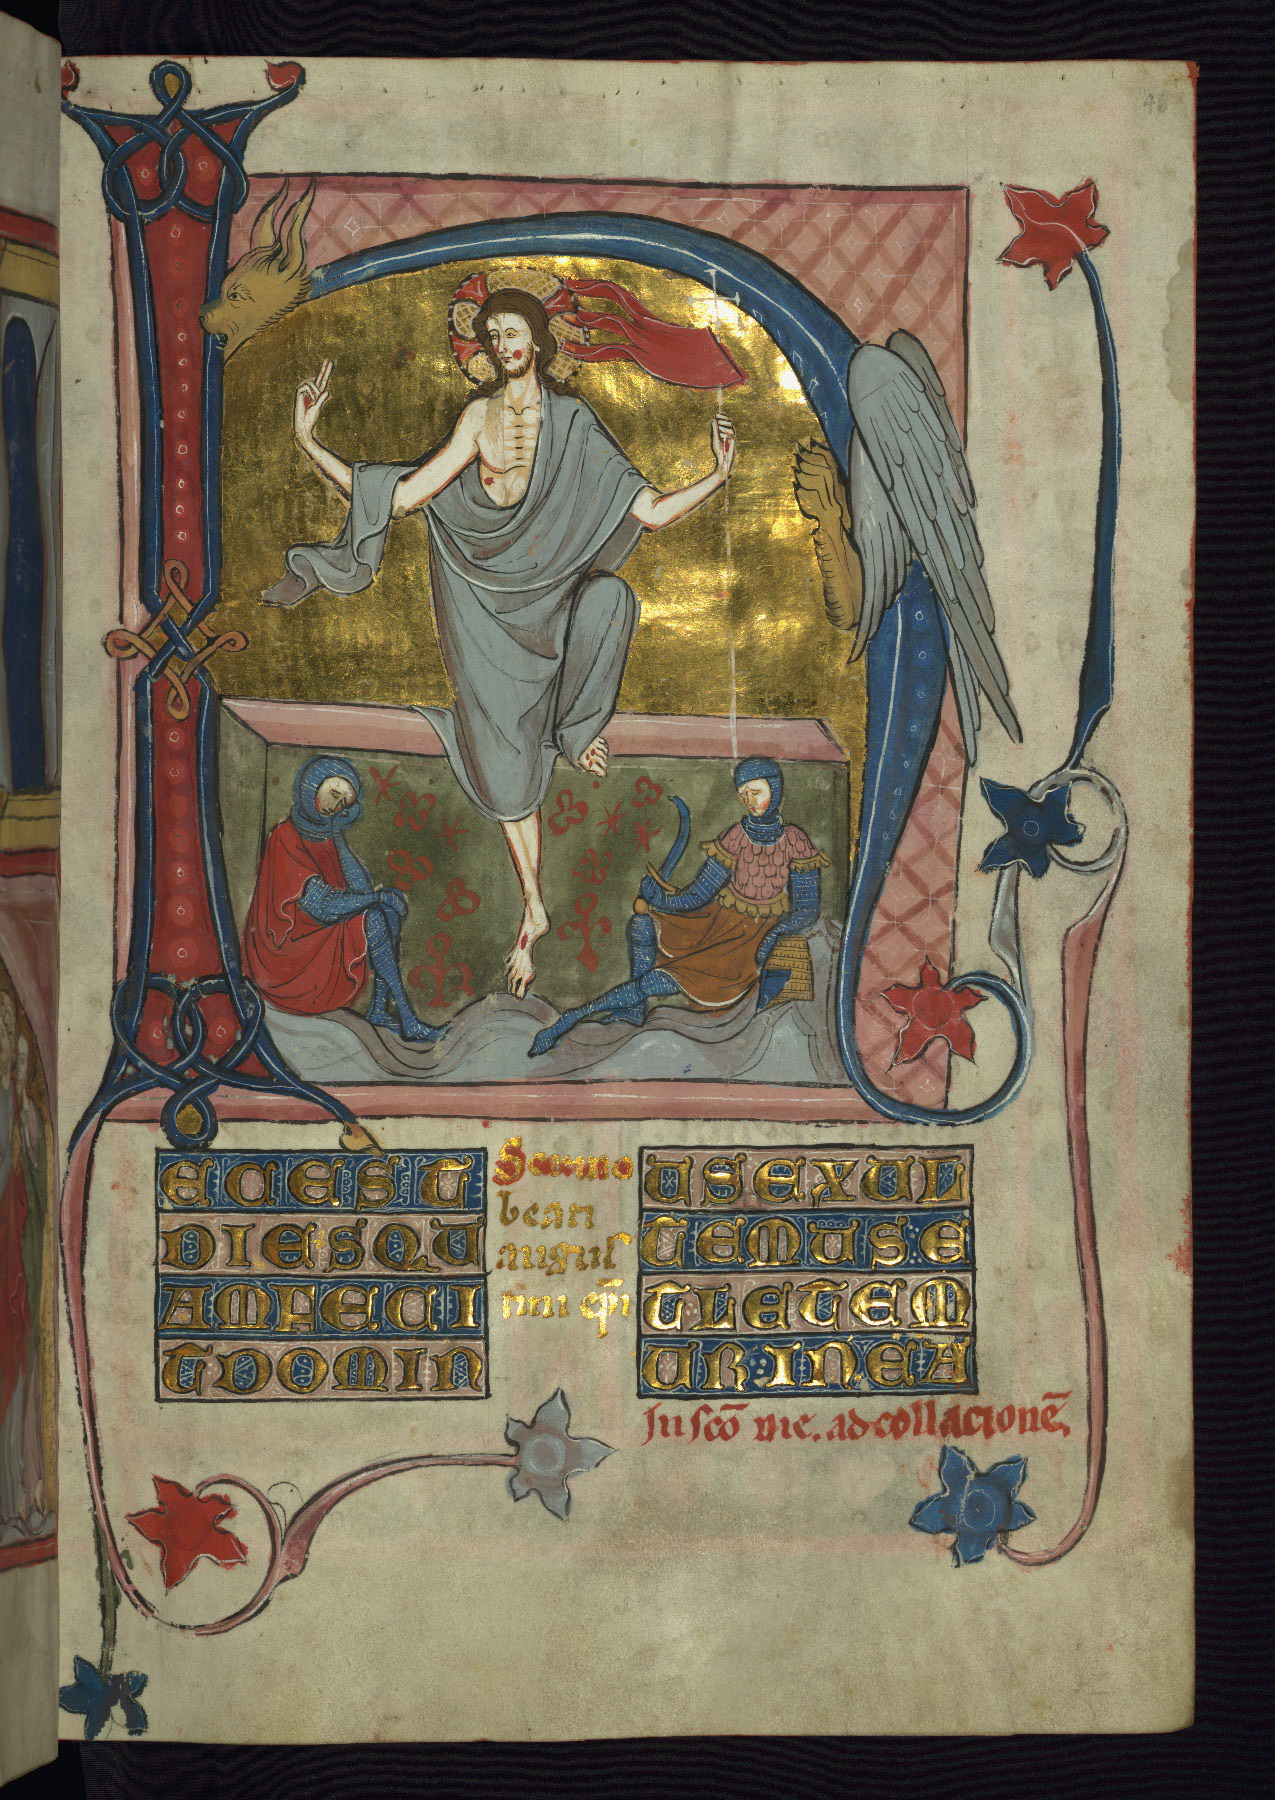 HECEST
DIESQU
AMFECI
TDOMIN
Sermo
beati
augus
tini ep̄i
USEXUL
TEMUSE
TLETEM
URINEA
In sc̄o die. ad collacionē.